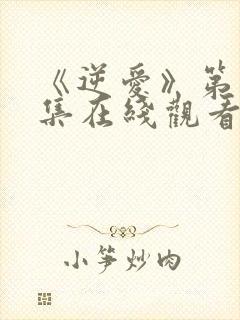 《逆愛》第
集在綫觀看
小笋炒肉